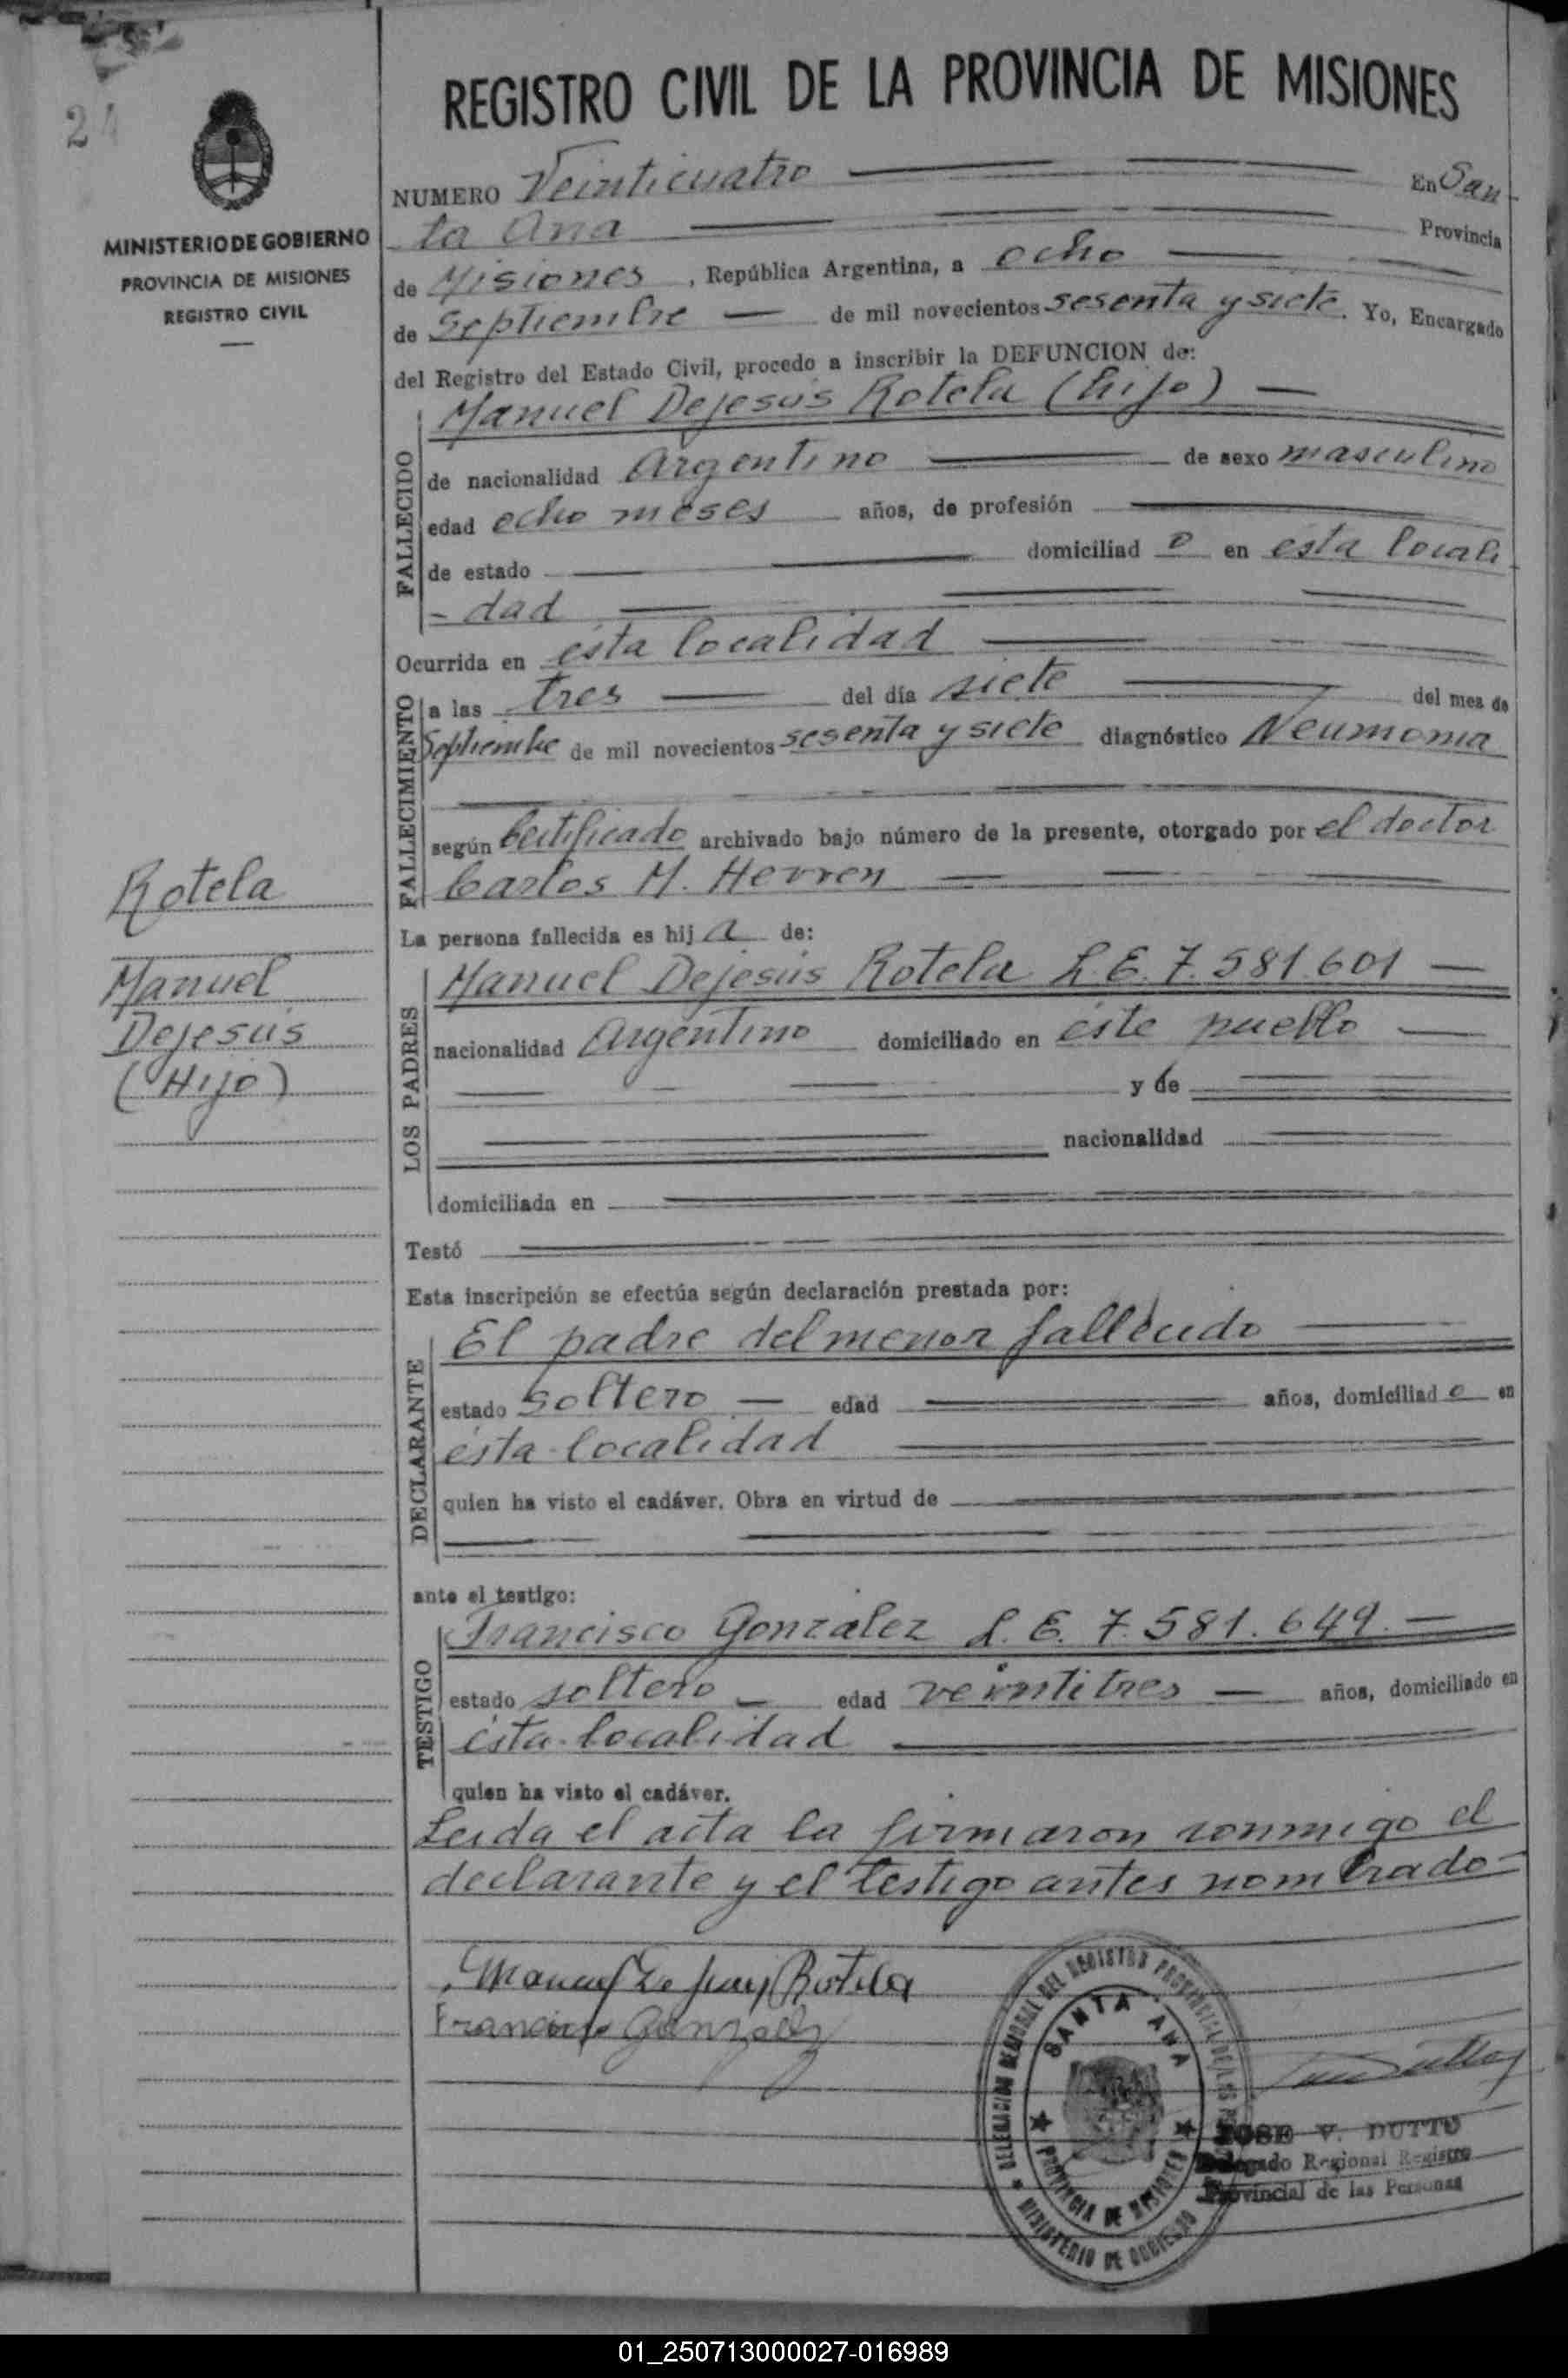 24
MINISTERIO DE GOBIERNO
PROVINCIA DE MISIONES
REGISTRO CIVIL
Rotela
Manuel
Dejesús
(Hijo)
REGISTRO CIVIL DE LA PROVINCIA DE MISIONES
NUMERO Veinticuatro En San
ta Ana Provincia
de Misiones, República Argentina, a ocho
de Septiembre de mil novecientos sesenta y siete. Yo, Encargado
del Registro del Estado Civil, procedo a inscribir la DEFUNCION de:
FALLECIDO
Manuel Dejesús Rotela (hijo)
de nacionalidad Argentino de sexo masculino
edad ocho meses años, de profesión
de estado domiciliad o en esta locali
- dad
Ocurrida en ésta localidad
FALLECIMIENTO
a las tres del día siete del mes de
Septiembre de mil novecientos sesenta y siete diagnóstico Neumonia
según Certificado archivado bajo número de la presente, otorgado por el doctor
Carlos M. Herren
La persona fallecida es hij a de:
LOS PADRES
Manuel Dejesús Rotela L.E. 7.581.601
nacionalidad Argentino domiciliado en éste pueblo
y de
nacionalidad
domiciliada en
Testó
Esta inscripción se efectúa según declaración prestada por:
DECLARANTE
El padre del menor fallecido
estado soltero edad años, domiciliad o en
ésta localidad
quien ha visto el cadáver. Obra en virtud de
ante el testigo:
TESTIGO
Francisco Gonzalez L.E. 7.581.649.
estado soltero edad veintitres años, domiciliado en
ésta localidad
quien ha visto el cadáver.
Leida el acta la firmaron conmigo el
declarante y el testigo antes nombrado
Manuel De Jesus Rotela
Francisco Gonzalez
SANTA ANA
PROVINCIA DE MISIONES
MINISTERIO DE GOBIERNO
JOSE V. DUTTO
Delegado Regional Registro
Provincial de las Personas
01_250713000027-016989